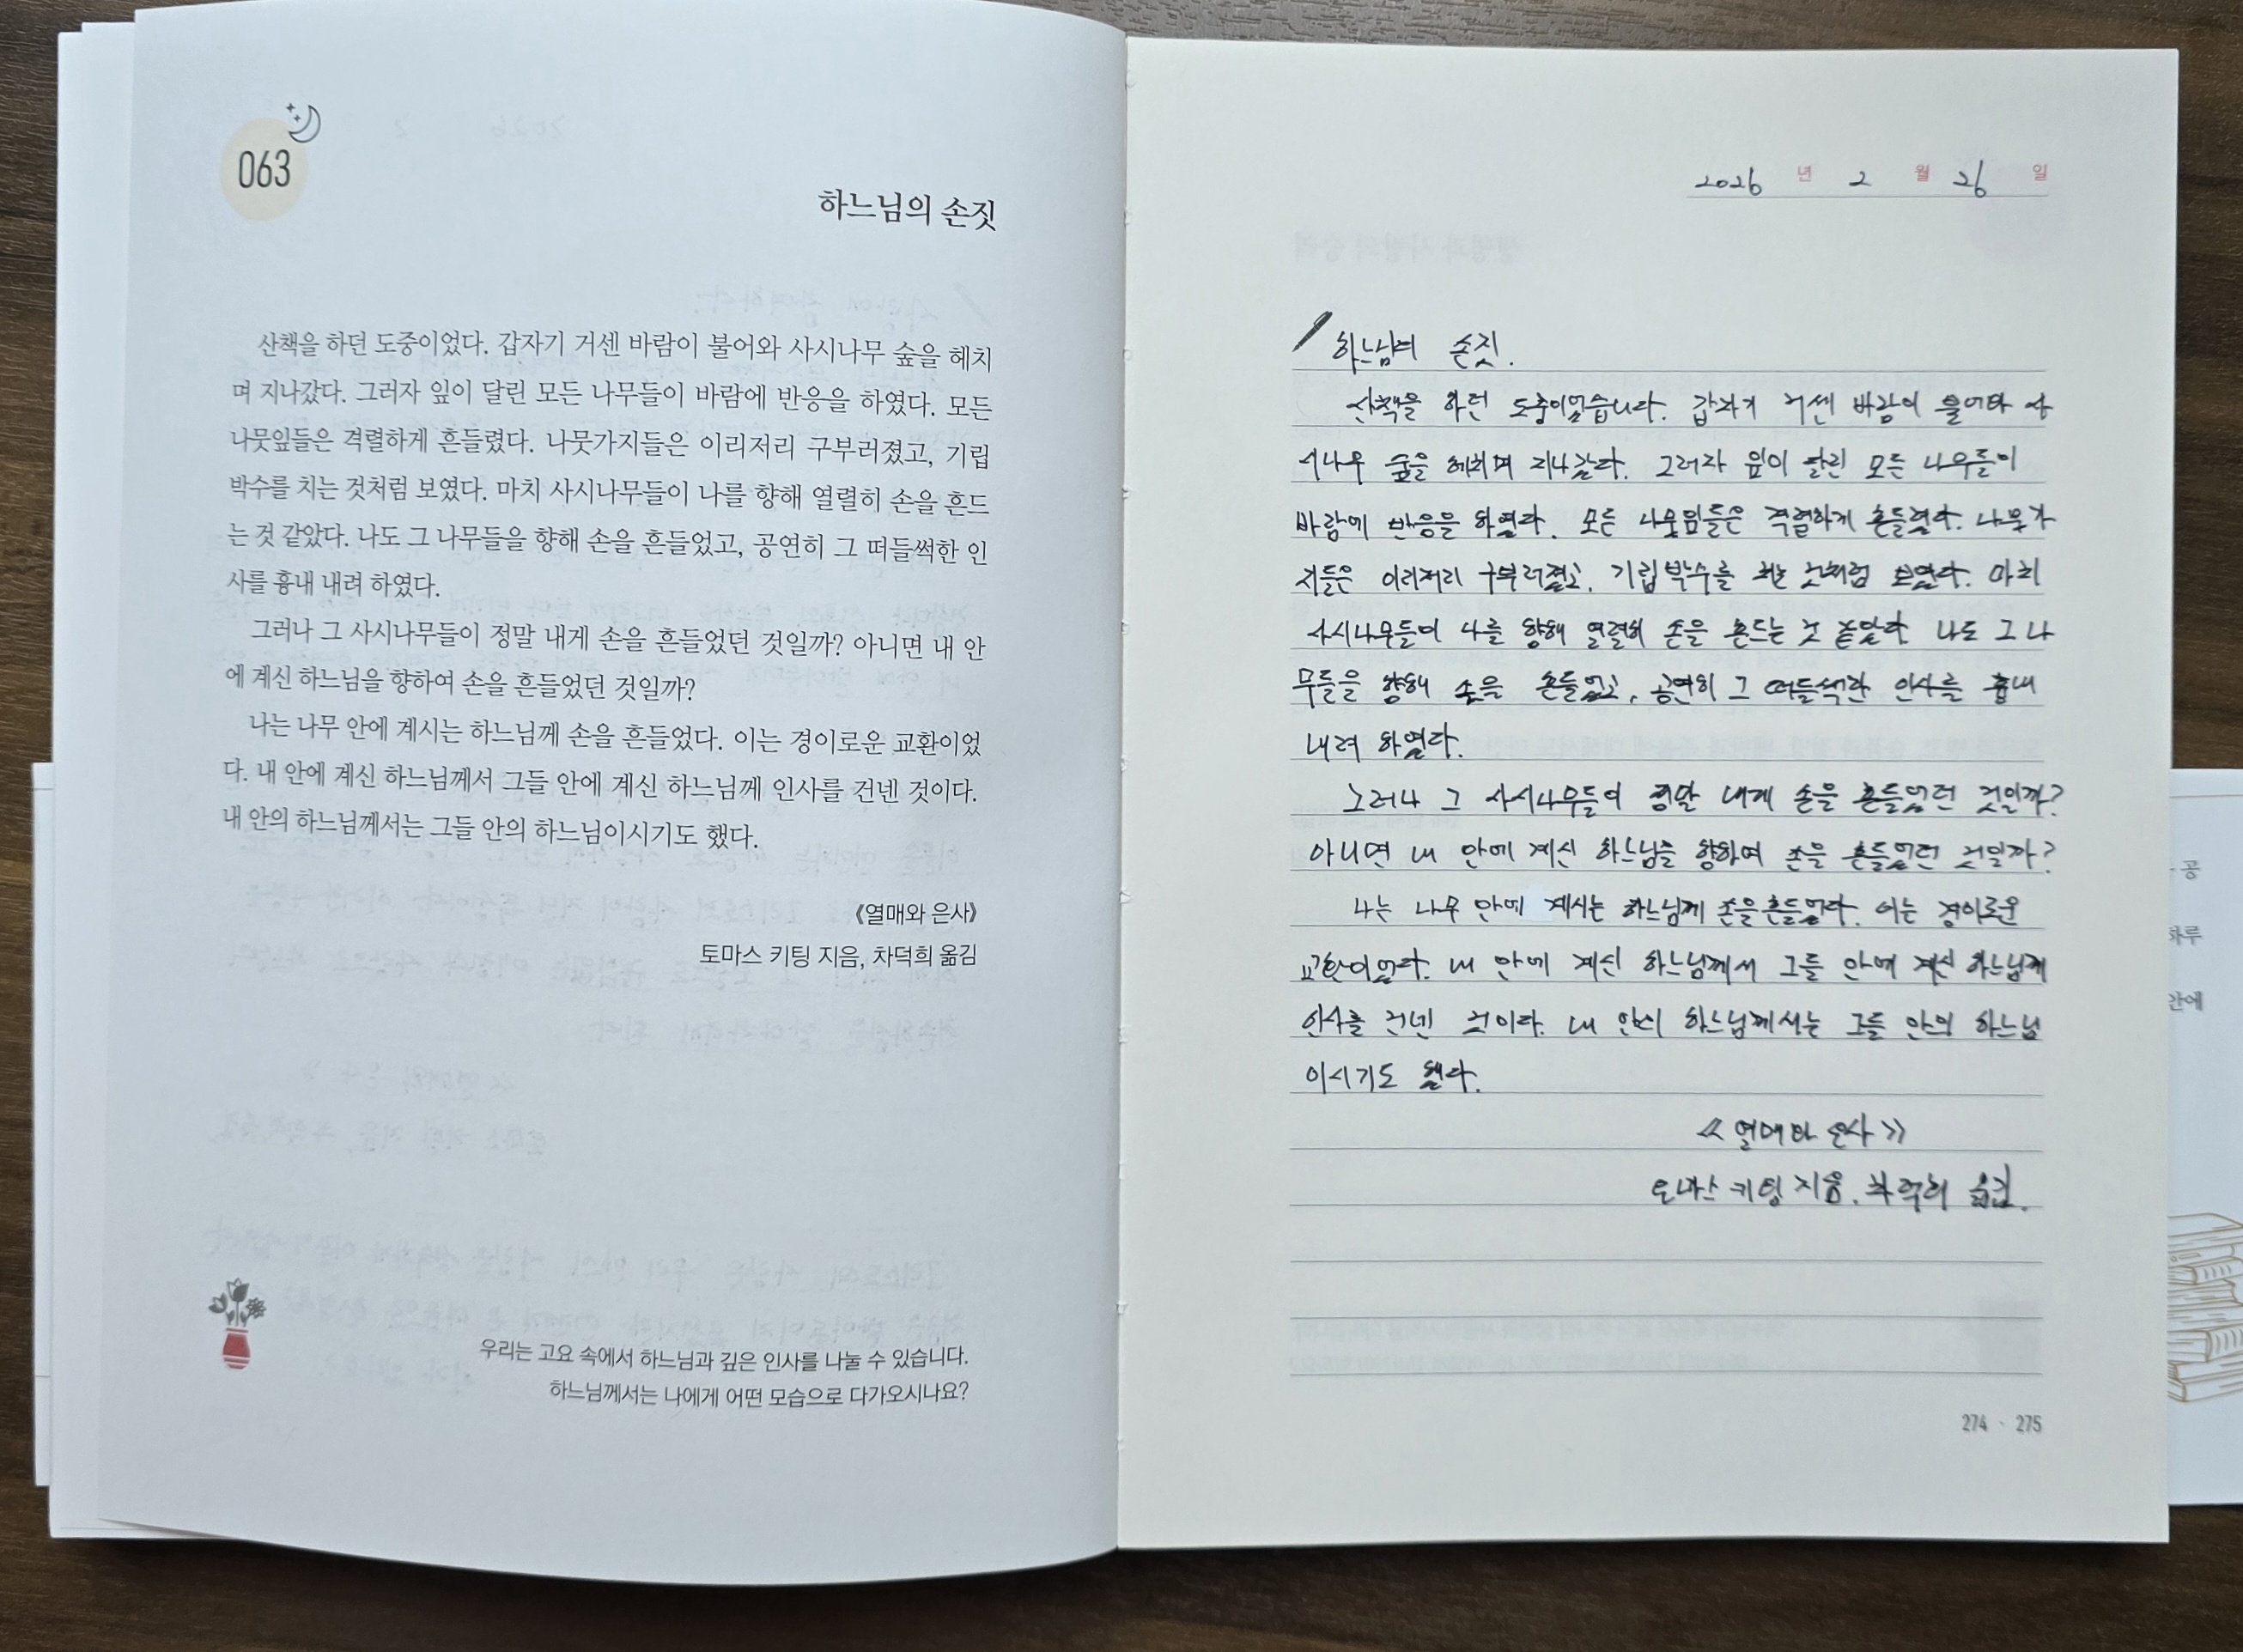 063
하느님의 손짓
산책을 하던 도중이었다. 갑자기 거센 바람이 불어와 사시나무 숲을 헤치
며 지나갔다. 그러자 잎이 달린 모든 나무들이 바람에 반응을 하였다. 모든
나뭇잎들은 격렬하게 흔들렸다. 나뭇가지들은 이리저리 구부러졌고, 기립
박수를 치는 것처럼 보였다. 마치 사시나무들이 나를 향해 열렬히 손을 흔드
는 것 같았다. 나도 그 나무들을 향해 손을 흔들었고, 공연히 그 떠들썩한 인
사를 흉내 내려 하였다.
그러나 그 사시나무들이 정말 내게 손을 흔들었던 것일까? 아니면 내 안
에 계신 하느님을 향하여 손을 흔들었던 것일까?
나는 나무 안에 계시는 하느님께 손을 흔들었다. 이는 경이로운 교환이었
다. 내 안에 계신 하느님께서 그들 안에 계신 하느님께 인사를 건넨 것이다.
내 안의 하느님께서는 그들 안의 하느님이시기도 했다.
《열매와 은사》
토마스 키팅 지음, 차덕희 옮김
우리는 고요 속에서 하느님과 깊은 인사를 나눌 수 있습니다.
하느님께서는 나에게 어떤 모습으로 다가오시나요?
2026 년 2 월 26 일
하느님의 손짓.
산책을 하던 도중이었습니다. 갑자기 거센 바람이 불어와 사
시나무 숲을 헤치며 지나갔다. 그러자 잎이 달린 모든 나무들이
바람에 반응을 하였다. 모든 나뭇잎들은 격렬하게 흔들렸다. 나뭇가
지들은 이리저리 구부러졌고, 기립박수를 치는 것처럼 보였다. 마치
사시나무들이 나를 향해 열렬히 손을 흔드는 것 같았다 나도 그 나
무들을 향해 손을 흔들었고, 공연히 그 떠들썩한 인사를 흉내
내려 하였다.
그러나 그 사시나무들이 정말 내게 손을 흔들었던 것일까?
아니면 내 안에 계신 하느님을 향하여 손을 흔들었던 것일까?
나는 나무 안에 계시는 하느님께 손을 흔들었다. 이는 경이로운
교환이었다. 내 안에 계신 하느님께서 그들 안에 계신 하느님께
인사를 건넨 것이다. 내 안의 하느님께서는 그들 안의 하느님
이시기도 했다.
《열매와 은사》
토마스 키팅 지음, 차덕희 옮김.
274 · 275
공
하루
안에